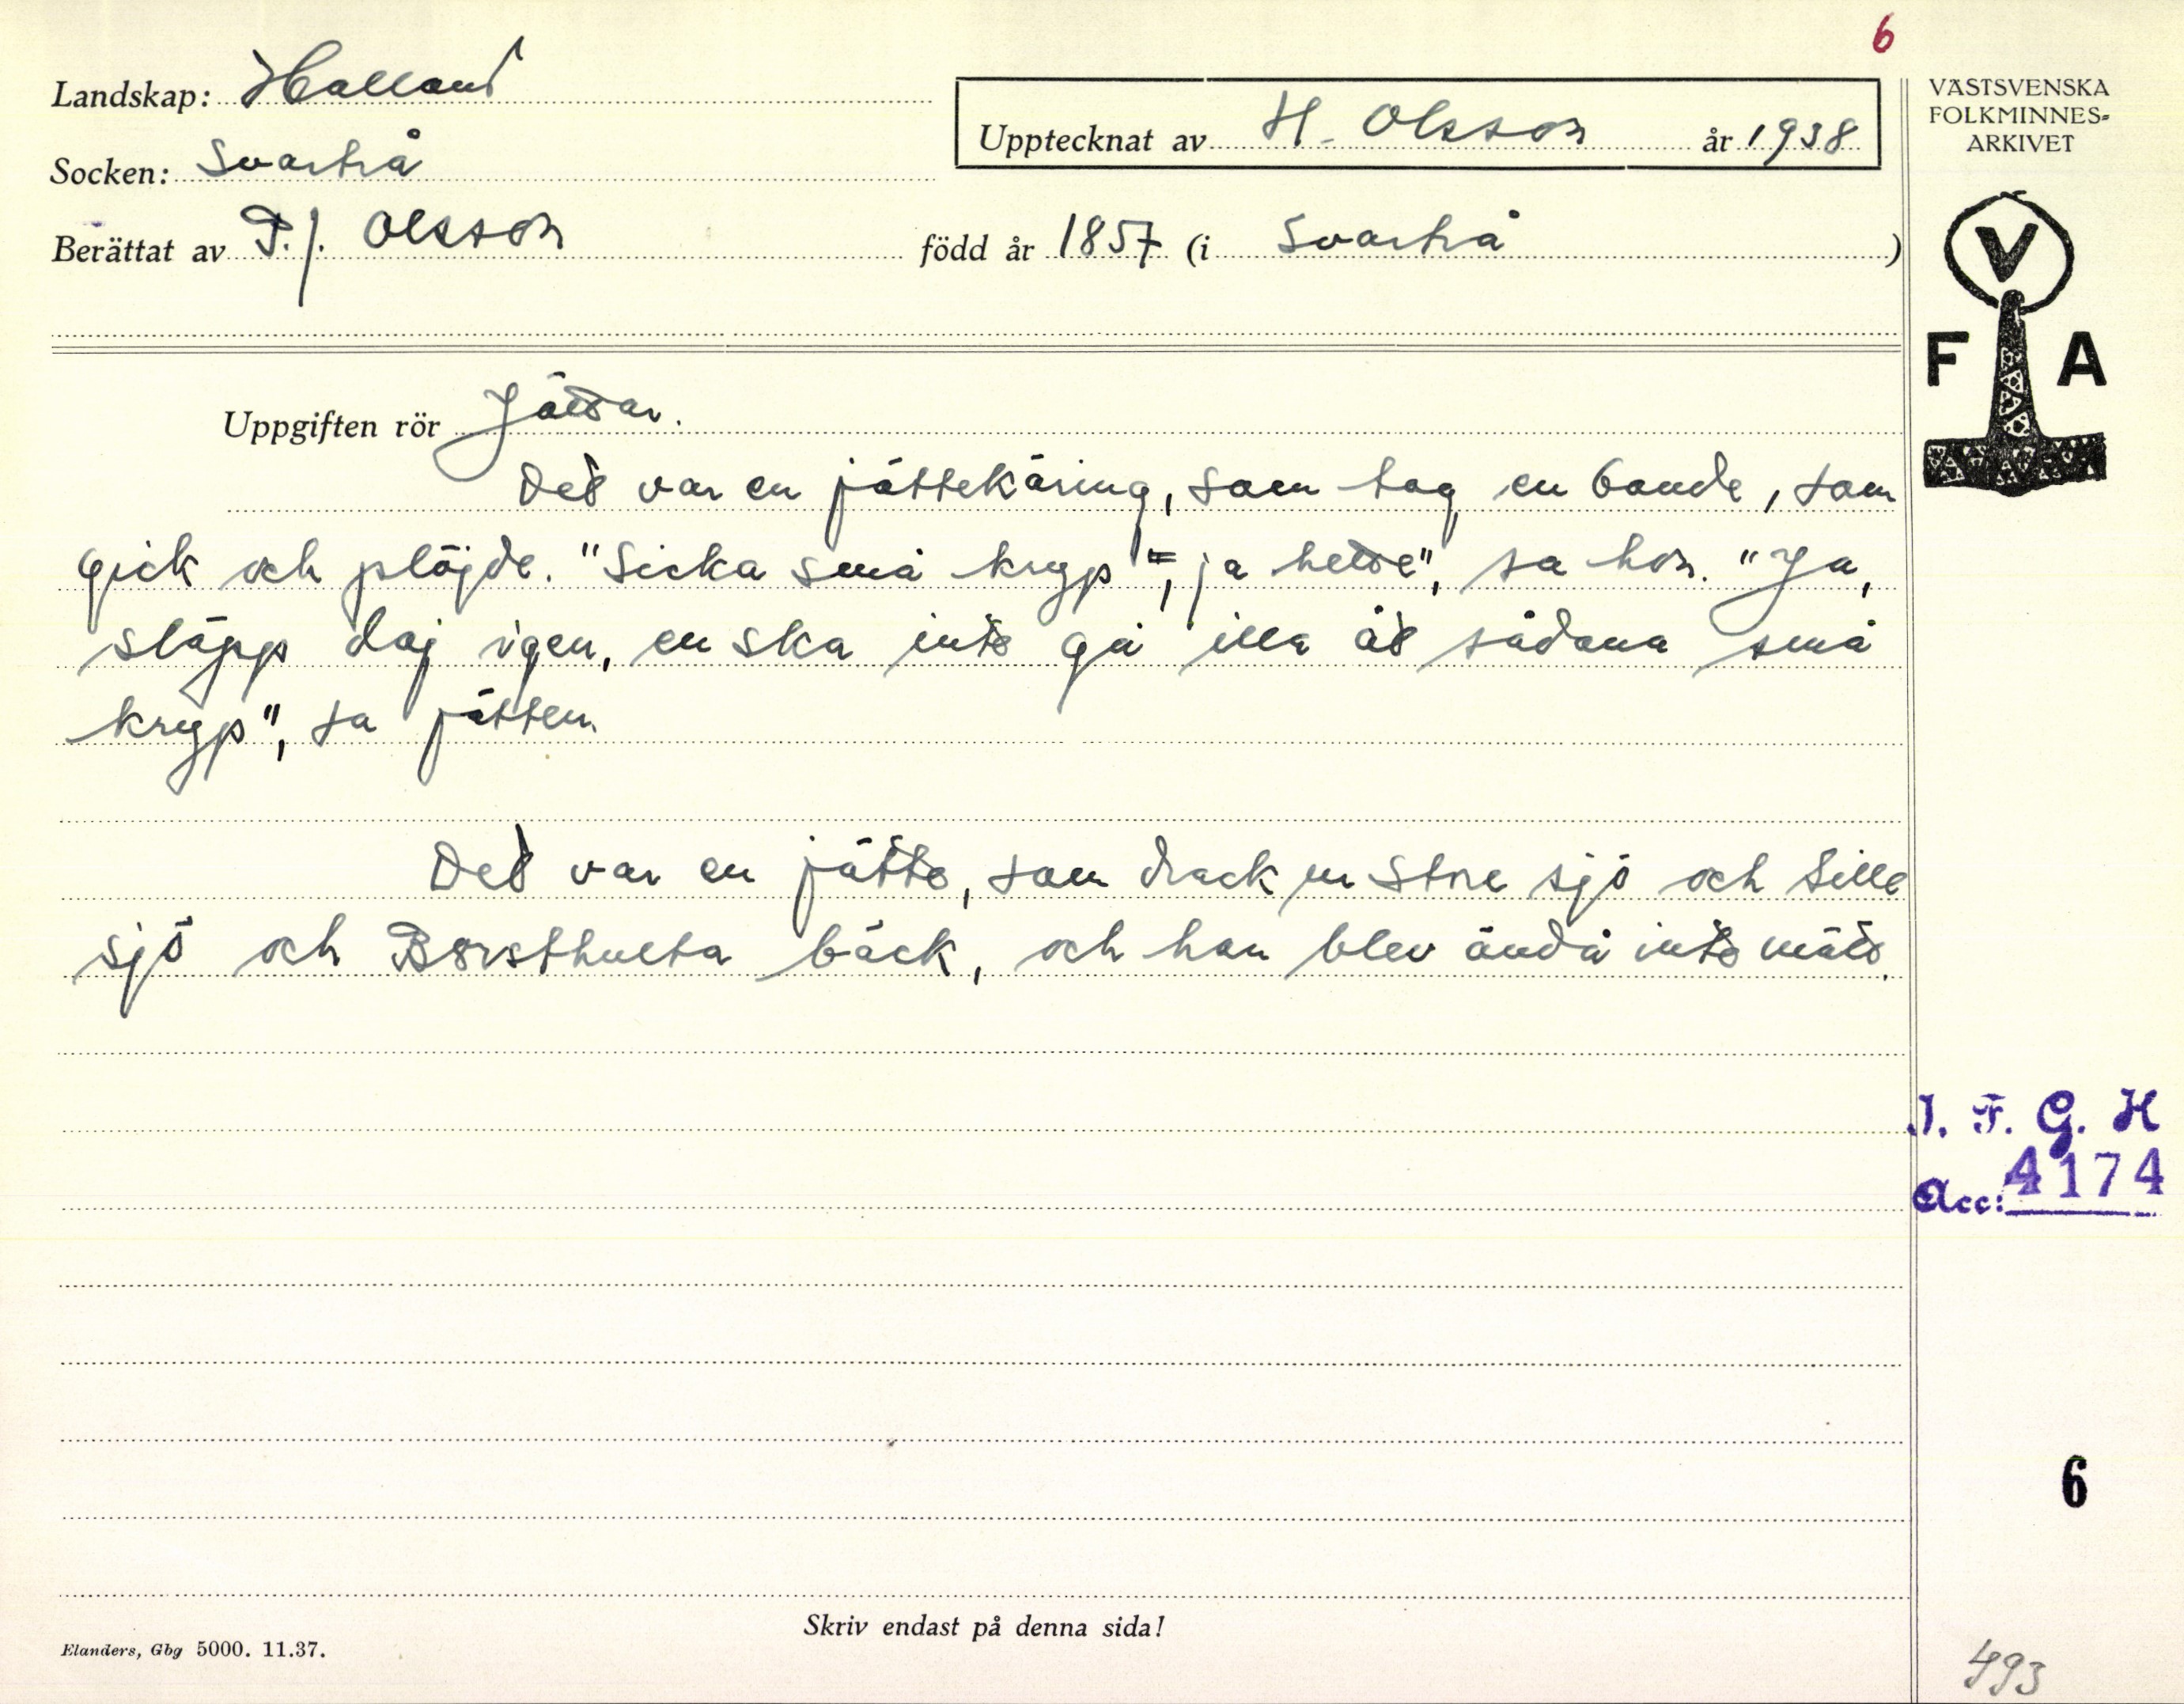 6
Landskap: Halland
Upptecknat av H. Olsson år 1938
VÄSTSVENSKA
FOLKMINNES-
ARKIVET
Socken: Svartrå
Berättat av P. J. Olsson född år 1857 (i Svartrå)
V
F A
Uppgiften rör Jättar.
Det var en jättekäring, som tog en bonde, som
gick och plöjde. "Sicka små kryp", ja hette", sa hon. "Ja,
släpp daj igen, en ska inte gå illa åt sådana små
kryp", sa jätten.
Det var en jätte, som drack ur Store sjö och Lille
sjö och Borsthulta bäck, och han blev ändå inte mätt.
I. F. G. H
Acc: 4174
6
Skriv endast på denna sida!
Elanders, Gbg 5000. 11.37.
493